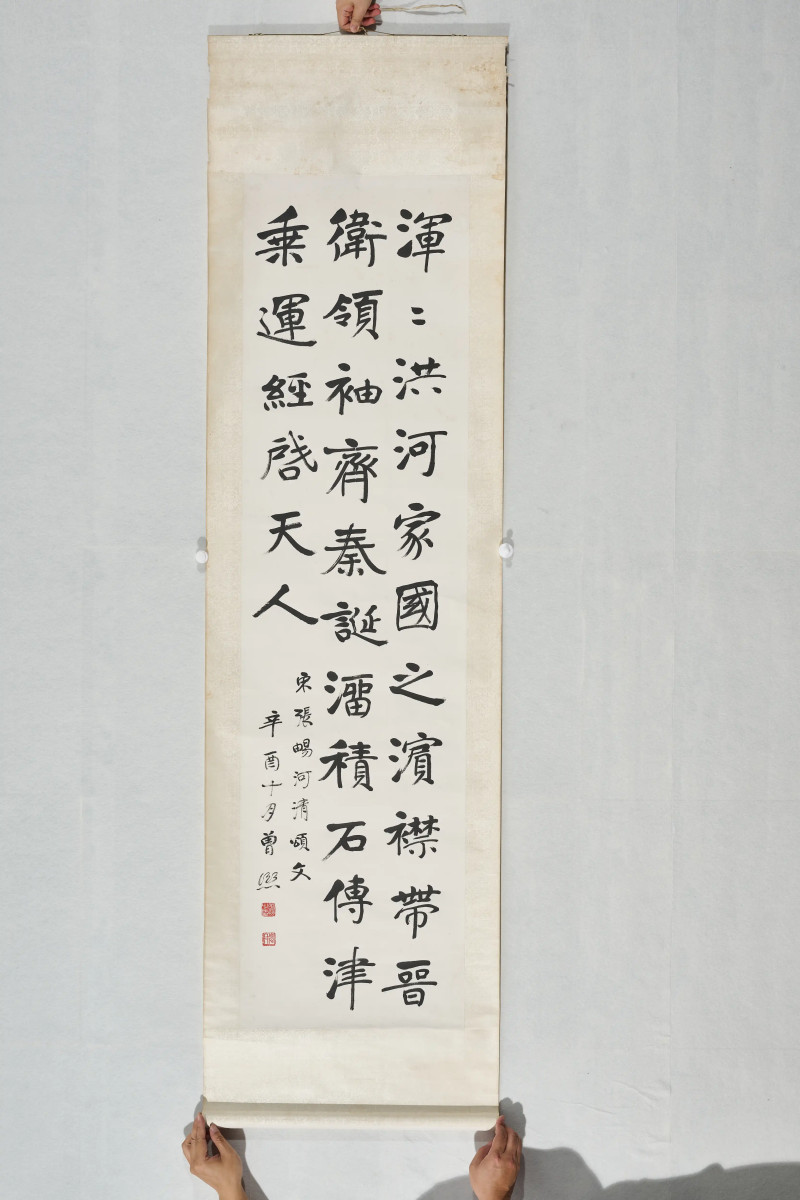 渾〻洪河家國之濱襟帶晉
衛領袖齊秦誕溜積石傳津
乘運經啓天人
宋張暢河清頌文
辛酉十月曾熙